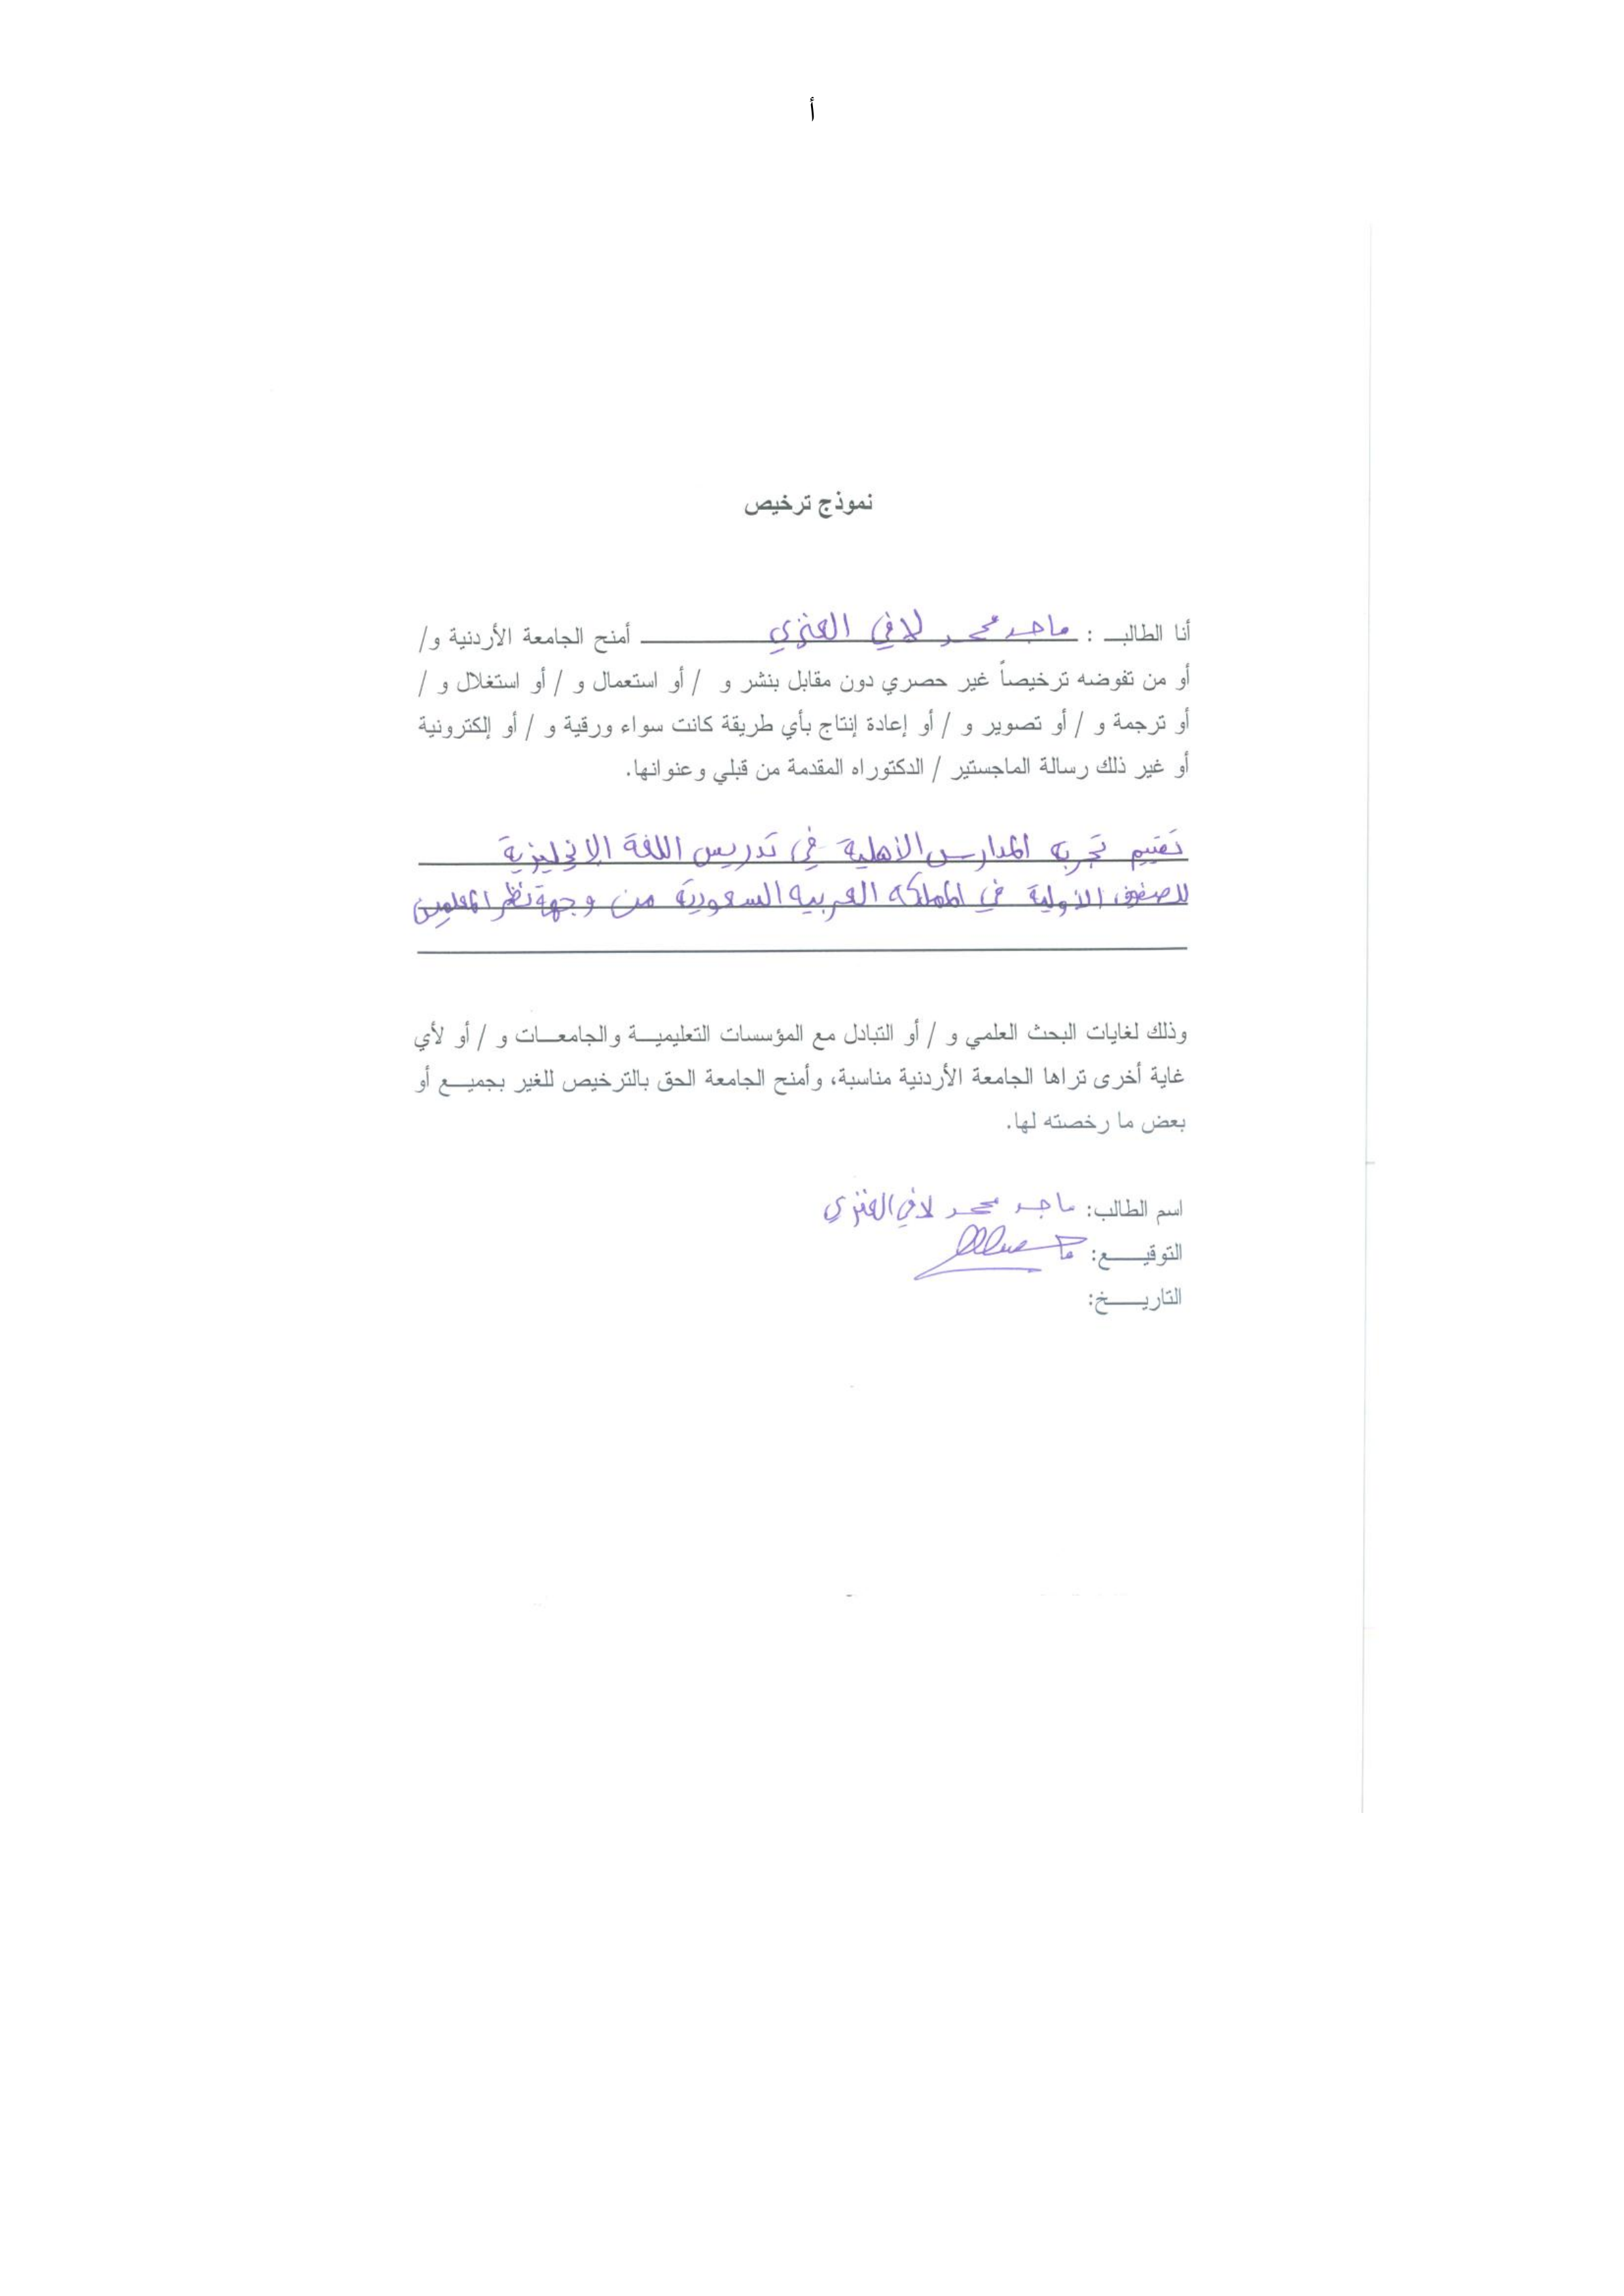 أ
نموذج ترخيص
أنا الطالب : ماجد محمد لافي العنزي أمنح الجامعة الأردنية و/
أو من تفوضه ترخيصاً غير حصري دون مقابل بنشر و / أو استعمال و / أو استغلال و /
أو ترجمة و / أو تصوير و / أو إعادة إنتاج بأي طريقة كانت سواء ورقية و / أو إلكترونية
أو غير ذلك رسالة الماجستير / الدكتوراه المقدمة من قبلي وعنوانها.
تقييم تجربه المدارس الأهلية في تدريس اللغة الإنجليزية
للصفوف الأولية في المملكه العربيه السعودية من وجهة نظر المعلمين
وذلك لغايات البحث العلمي و / أو التبادل مع المؤسسات التعليمية والجامعات و / أو لأي
غاية أخرى تراها الجامعة الأردنية مناسبة، وأمنح الجامعة الحق بالترخيص للغير بجميع أو
بعض ما رخصته لها.
اسم الطالب: ماجد محمد لافي العنزي
التوقيع:
التاريخ: